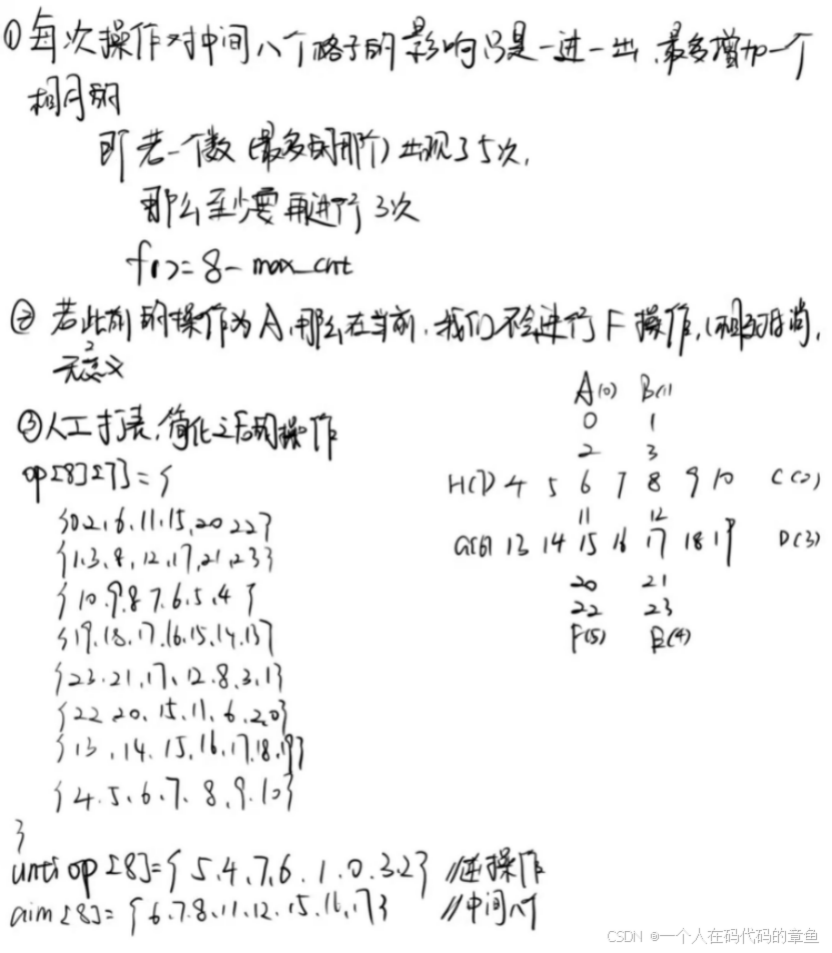 ①每次操作对中间八个格子的影响只是一进一出,最多增加一个
相同的
即若一个数(最多的那个)出现了5次,
那么至少要再进行3次
f()=8-max_cnt
②若此前的操作为A,那么在当前,我们不会进行F操作,(相互抵消,
无意义
③人工打表,简化之后的操作
op[8][7]={
{0.2,6.11.15,20.22}
{1.3,8,12,17,21,23}
{10.9.8.7.6.5.4}
{19.18.17.16.15.14.13}
{23.21.17.12.8.3.1}
{22.20.15.11.6.2.0}
{13.14.15.16.17.18.19}
{4.5.6.7.8.9.10}
}
A(0) B(1)
0 1
2 3
H(7) 4 5 6 7 8 9 10 C(2)
11 12
G(6) 13 14 15 16 17 18 19 D(3)
20 21
22 23
F(5) E(4)
unti op[8]={5.4.7.6.1.0.3.2} //逆操作
aim[8]={6.7.8.11.12.15.16.17} //中间八个
CSDN @一个人在码代码的章鱼